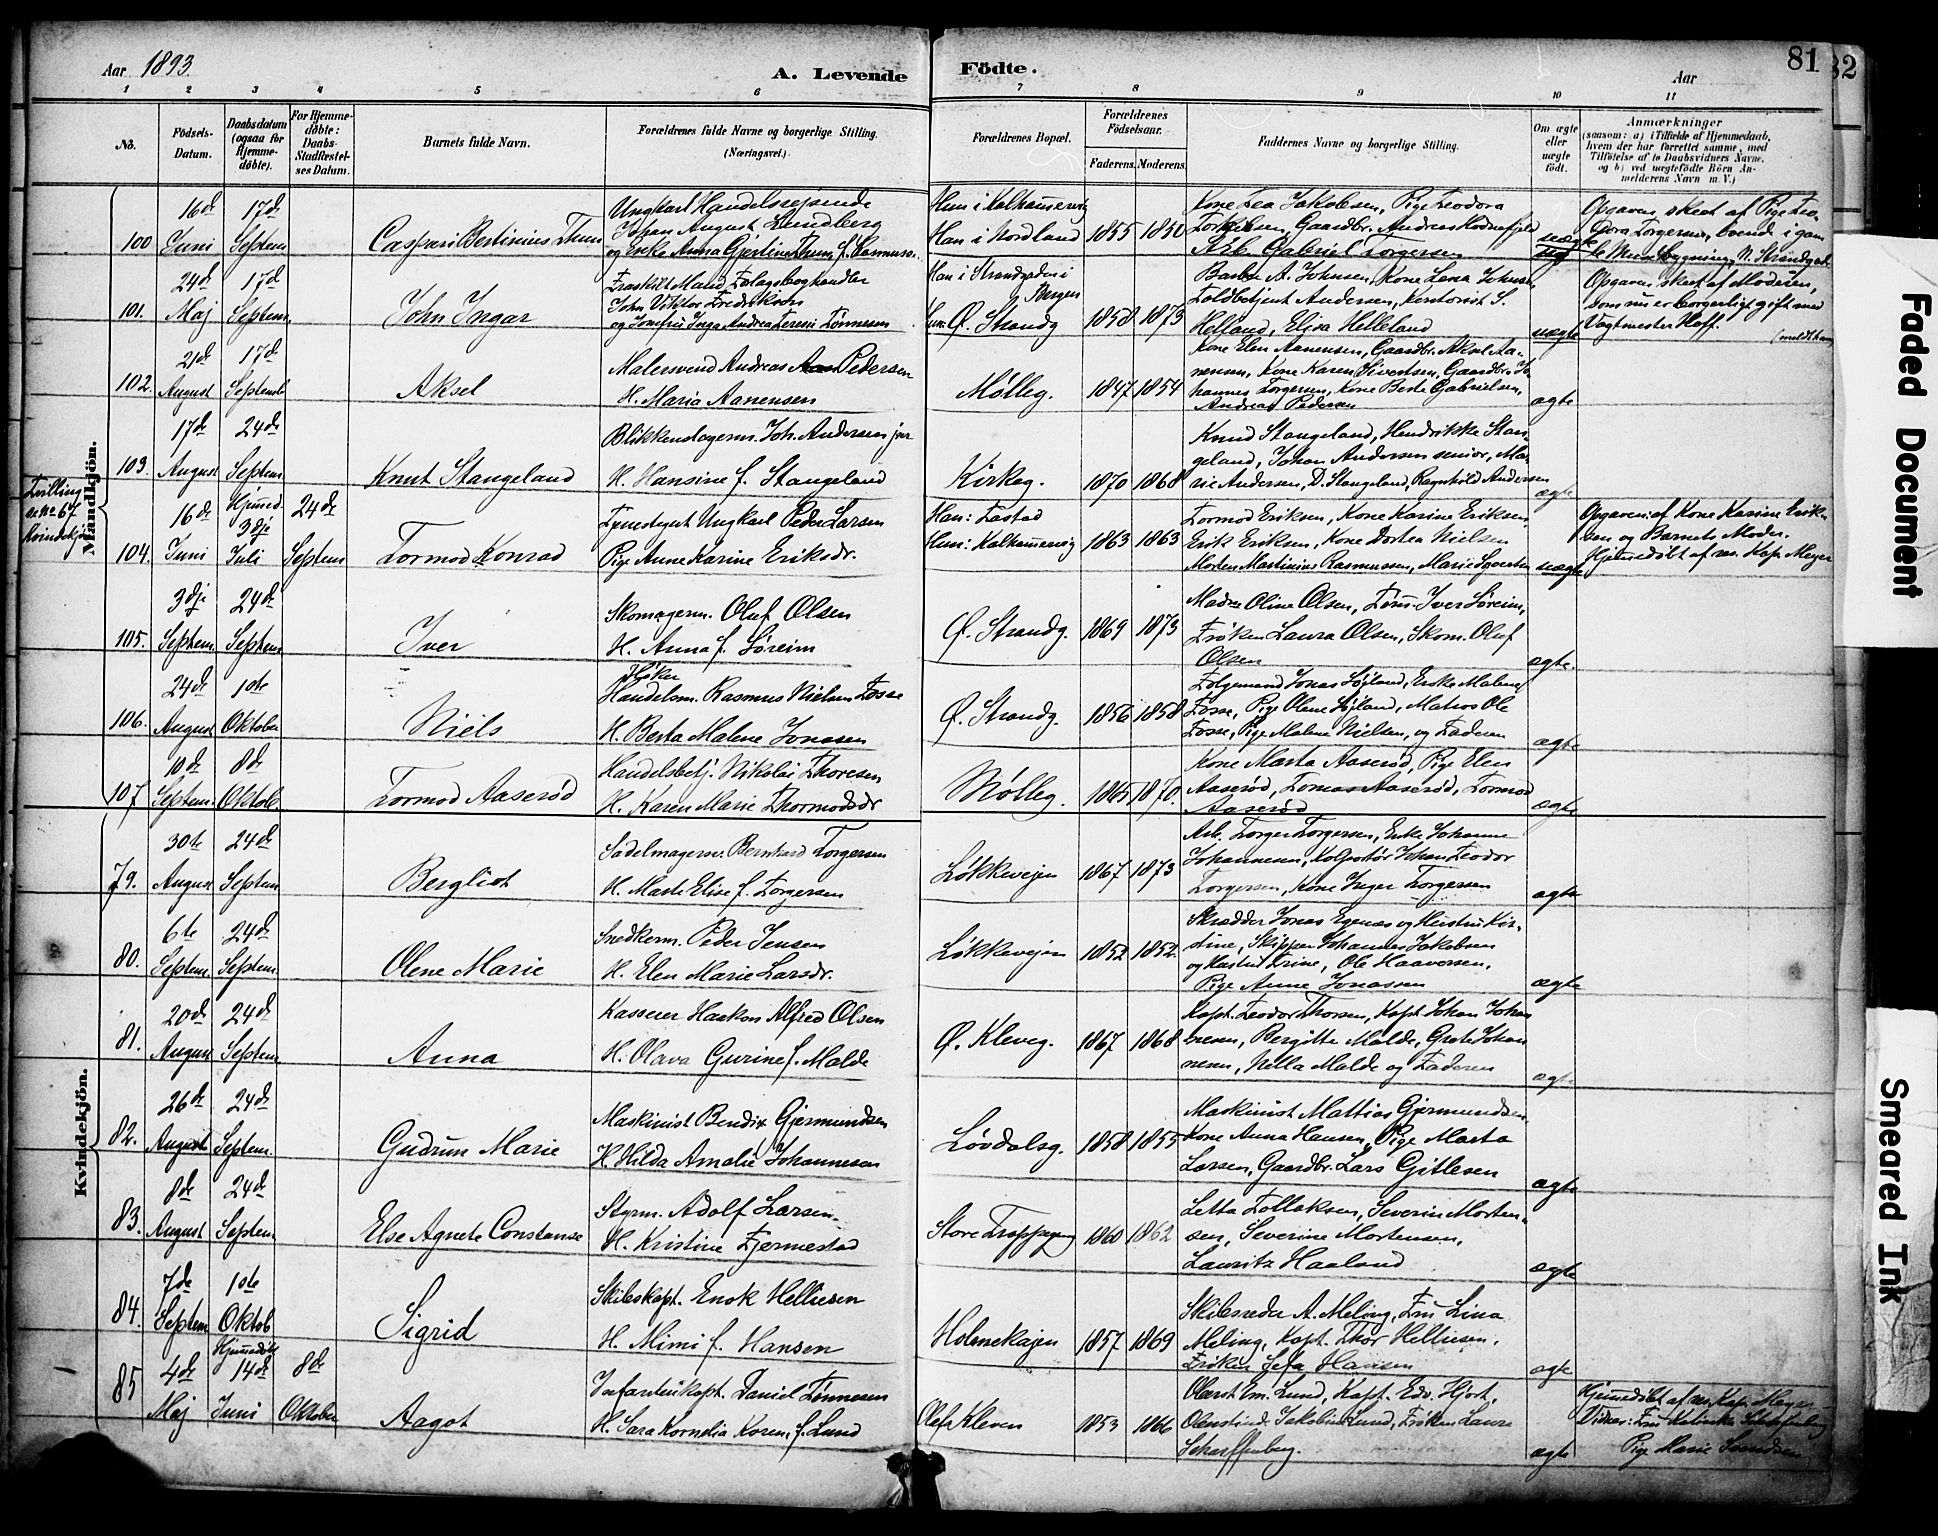 Aar 1893.
A. Levende Fødte.
Aar
81
82
1 2 3 4 5 6 7 8 9 10 11
No.
Fødsels-Datum.
Daabsdatum (ogsaa for Hjemmedøbte).
For Hjemmedøbte: Daabs-Stadfæstelses Datum.
Barnets fulde Navn.
Forældrenes fulde Navne og borgerlige Stilling. (Næringsvei.)
Forældrenes Bopæl.
Forældrenes Fødselsaar.
Faderens. Moderens.
Faddernes Navne og borgerlige Stilling.
Om ægte eller uægte født.
Anmærkninger
(saasom: a) i Tilfælde af Hjemmedaab,
hvem der har forrettet samme, med
Tilføielse af to Daabsvidners Navne,
og b) ved uægtefødte Børn An-
melderens Navn m. V.)
Mandkjön.
100 16de Juni 17de Septem.
Caspari Bertinius Thum
Ungkarl Handelsreisende
Johan August Lundberg
og Enke Anna Gjertine Thum f. Rasmuss.
Hun i Kalhammervig
Han i Nordland
1855 1850
Kone Lea Jakobsen, Pige Teodora
Torkelsen, Gaardbr. Andreas
Arb. Gabriel Torgersen
uægte
Opgaven skeet af Pige Teo-
dora Torgersen, boende i gam
101. 24de Maj 17de Septem.
John Ingar
Fraskilt Mand, Forlagsboghandler
John Viktor Fredrikson
og Jomfru Inga Andrea Tønnesen
Han i Strandgaden i
Bergen
Hun: Ø. Strandg
1858 1873
A. Johnsen, Kone Lena Johnsen
Toldbetjent Andersen, Kontorist S.
Helland, Elisa Helleland
uægte
Opgaven skeet af Moderen,
som nu er borgerligt gift med
Vagtmester Hoff.
102. 21de August 17de Septemb
Aksel
Malersvend Andreas Pedersen
H. Maria Aanensen
Mølleg.
1847 1854
Kone Elen Aanensen, Gaardbr. Aksel Aa-
nensen, Kone Karen Sivertsen, Gaardbr. Jo-
hannes Torgersen, Kone Berte Gabrielsen,
Andreas Pedersen
ægte
103. 17de August 24de Septem.
Knut Stangeland
Blikkenslagerm. Joh. Andersen jun
H. Hansine f. Stangeland
Kirkeg.
1870 1868
Knud Stangeland, Hendrikke Stan-
geland, Johan Andersen senior, Ma-
rie Andersen, D. Stangeland, Ragnhild Andersen
ægte
Tvilling
No 67
Kvindekjøn
104. 16de Juni Hjemmed. 3dje Juli 24de Septem
Tormod Konrad
Tjenestegut Ungkarl Peder Larsen
Pige Anne Karine Eriksdr.
Han: Tastad
Hun: Kalhammervig
1863 1863
Tormod Eriksen, Kone Karine Eriksen
Erik Eriksen, Kone Dortea Nielsen
Morten Martinius Rasmussen, Marie Sjoersten
uægte
Opgaven: af Kone Karine Erik-
sen og Barnets Moder.
Hjemmedøbt af res. Kap. Meyer
105. 3dje Septem. 24de Septem.
Iver
Skomagerm. Oluf Olsen
H. Anna f. Søreim
Ø. Strandg.
1869 1873
Madm. Oline Olsen, Tøm. Iver Søreim,
Frøken Laura Olsen, Skom. Oluf
Olsen
ægte.
106. 24de August 1ste Oktober
Niels
Høker
Handelsm. Rasmus Nielsen Fosse
H. Berta Malene Jonasen
Ø. Strandg.
1856 1858
Følgemand Jonas Søiland, Enke Malene
Fosse, Pige Olene Søiland, Matros Ole
Fosse, Pige Malene Nielsen, og Faderen
ægte
107 10de Septem. 8de Oktob.
Tormod Aaserød
Handelsbetj. Nikolai Thoresen
H. Karen Marie Thormodsdr
Mølleg.
1865 1870.
Kone Marta Aaserød, Pige Elen
Aaserød, Tomas Aaserød, Tormod
Aaserød
ægte
Kvindekjön.
79. 30te August 24de Septem
Bergliot
Sadelmagersv. Bernhard Torgersen
H. Marte Elise f. Torgersen
Løkkevejen
1867 1873
Arb. Torger Torgersen, Enke Johanne
Johannesen, Kolportør Johan Teodor
Torgersen, Kone Inger Torgersen
ægte
80. 6te Septem. 24de Septem.
Olene Marie
Snedkerm. Peder Jensen
H. Elen Marie Larsdr.
Løkkevejen
1852 1852.
Skrædder Jonas Egenæs og Hustru Kir-
stine, Skipper Johannes Jakobsen
og Hustru Trine, Ole Haaversen,
Pige Anne Jonassen
ægte
81. 20de August 24de Septem.
Anna
Kasserer Haakon Alfred Olsen
H. Olava Gurine f. Malde
Ø. Kleveg.
1867 1868
Kapt. Teodor Thorsen, Kapt. Johan Johan
nesen, Bergitte Malde, Grete Johan
nesen, Nella Malde og Faderen
ægte
82. 26de August 24de Septem.
Gudrun Marie
Maskinist Bendix Gjermundsen
H. Hilda Amalie Johannesen
Løvdalsg.
1858 1855
Maskinist Mattias Gjermundsen,
Kone Anna Hansen, Pige Marta
Larsen, Gaardbr. Lars Gitlesen
ægte
83. 8de August 24de Septem
Else Agnete Constanse
Styrm. Adolf Larsen
H. Kristine Fjermestad
Store Trappegang
1860 1862
Letta Tollaksen, Severin Morten-
sen, Severine Mortensen,
Lauritz Haaland
ægte
84. 7de Septem 1ste Oktob
Sigrid
Skibskapt. Enok Helliesen
H. Mimi f. Hansen
Holmekajen
1857 1869
Skibsreder A. Meling, Fru Lina
Meling, Kapt. Thor Helliesen,
Frøken Sefa Hansen
ægte
85 4de Maj Hjemmedøbt 14de Juni 8de Oktober
Aagot
Infanterikapt. Daniel Tønnesen
H. Sara Kornelia Koren, f. Lund
Olafs Kleven
1853 1866
Oberst Em. Lund, Kapt. Edv. Hjort,
Oberstinde Jakobine Lund, Frøken Laura
Scharffenberg.
ægte
Hjemmedøbt af res. Kap. Meyer
Vidner: Fru Scharffenberg
Pige Marie Svendsen
Faded Document
Smeared Ink